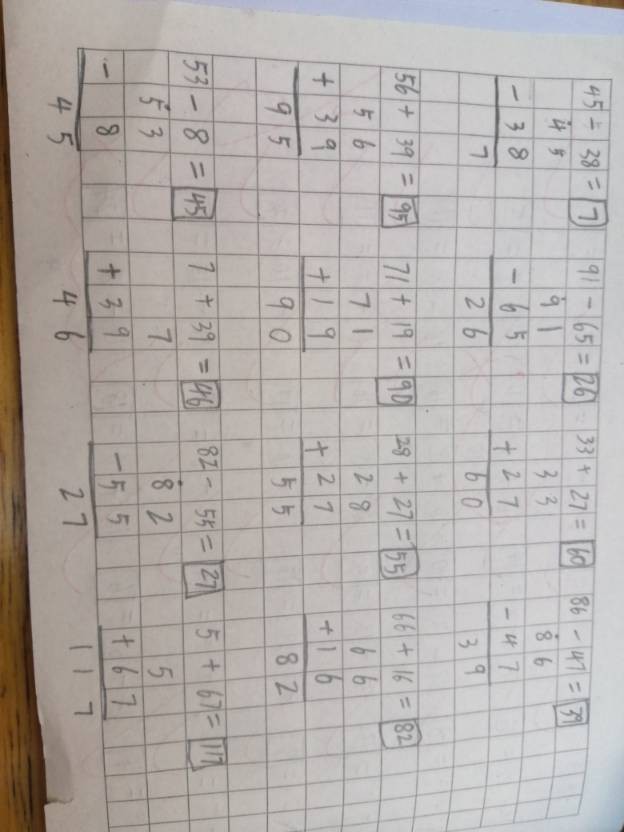 45 ÷ 38 = 7 91 - 65 = 26 33 + 27 = 60 86 - 47 = 39
45 91 33 86
- 38 - 65 + 27 - 47
7 26 60 39
56 + 39 = 95 71 + 19 = 90 28 + 27 = 55 66 + 16 = 82
56 71 28 66
+ 39 + 19 + 27 + 16
95 90 55 82
53 - 8 = 45 7 + 39 = 46 82 - 55 = 27 5 + 67 = 117
53 7 82 5
- 8 + 39 - 55 + 67
45 46 27 117